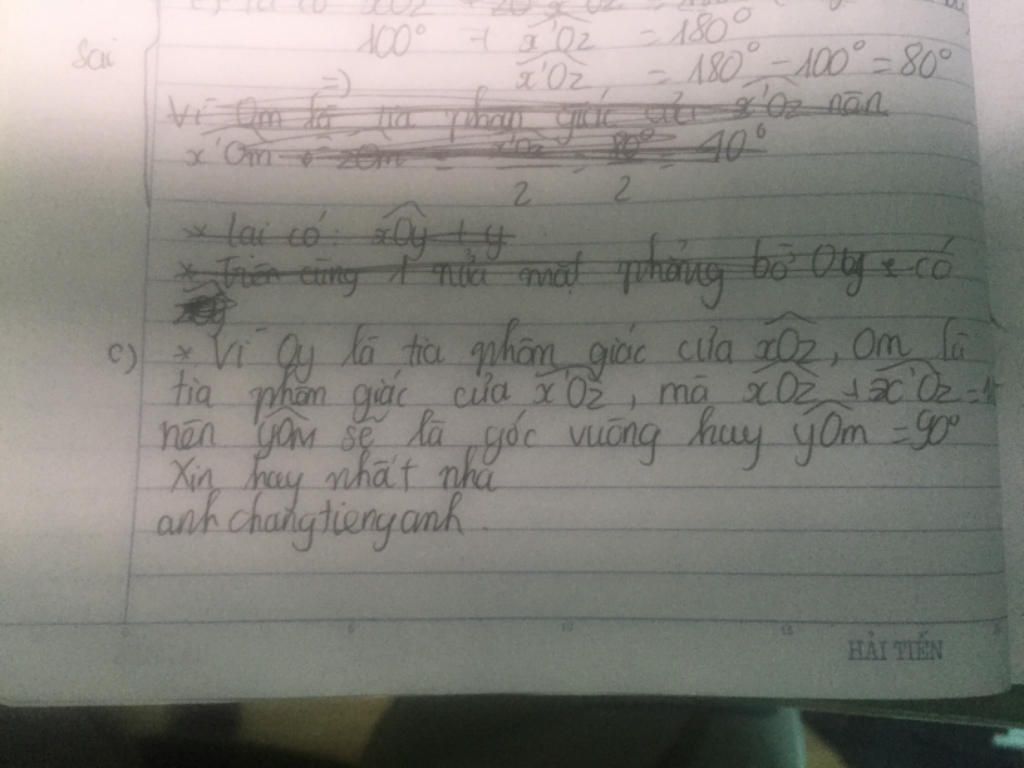 c) Ta có xOz + x'Oz = 180°
100° + x'Oz = 180°
Sai
=) x'Oz = 180° - 100° = 80°
Vì Om là tia phân giác của x'Oz nên
x'Om = zOm = x'Oz/2 = 80°/2 = 40°
* lại có: xOy + y
* Trên cùng 1 nửa mặt phẳng bờ Oty & có
c) * Vì Oy là tia phân giác của xOz, Om là
tia phân giác của x'Oz, mà xOz + x'Oz = 1
nên yOm sẽ là góc vuông hay yOm = 90°
Xin hay nhất nha
anhchangtienganh
HẢI TIẾN